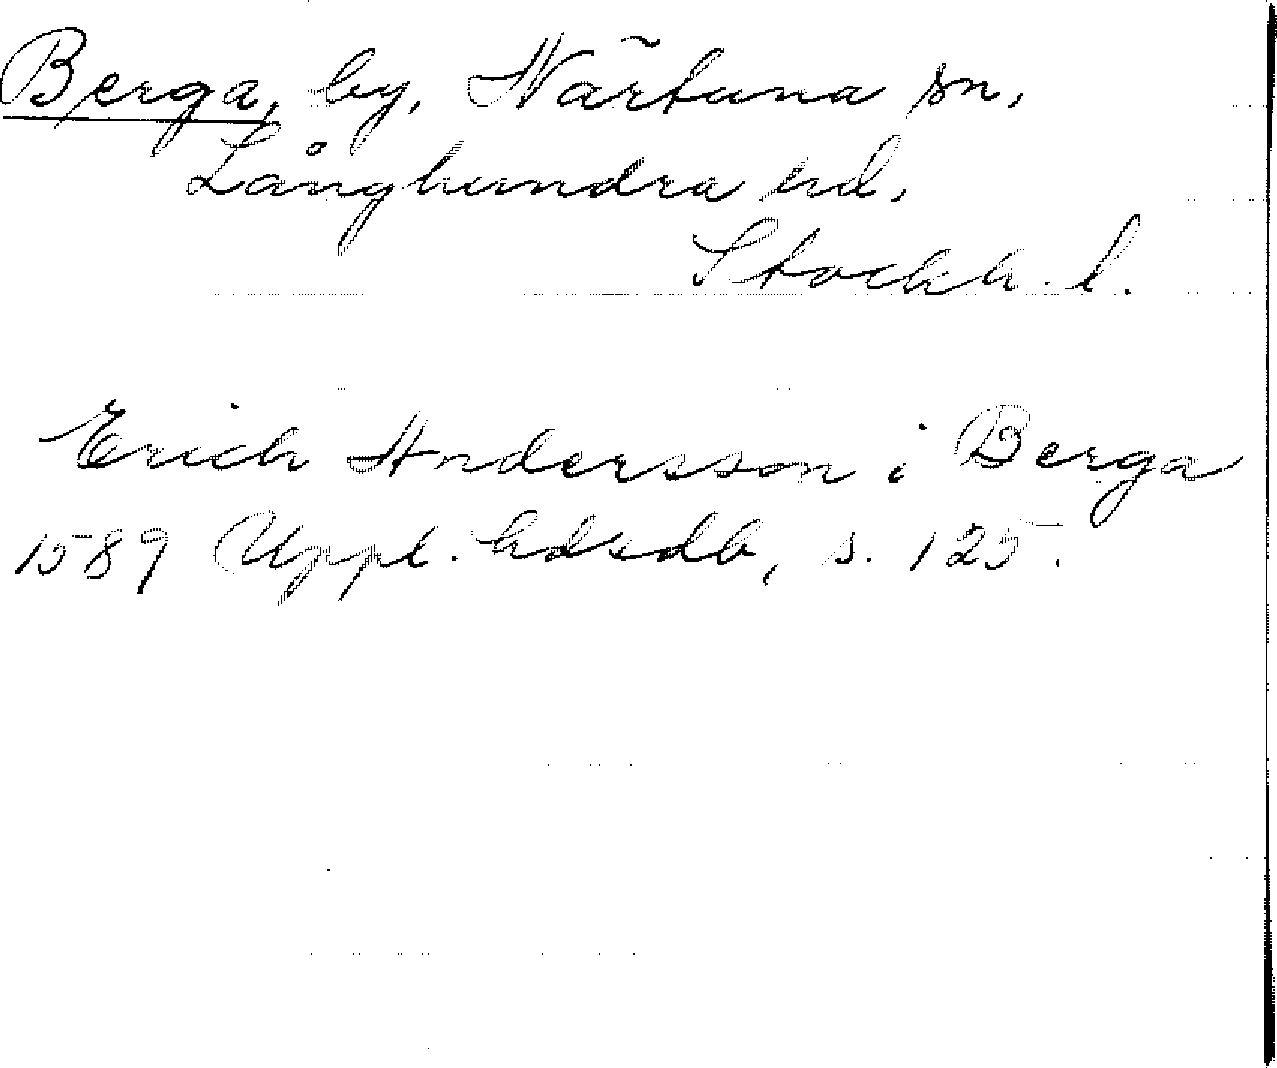 Berga, by, Närtuna sn,
Långhundra hd,
Stockh. l.
Erich Andersson i Berga
1589 Uppl. hdrdb, s. 125.